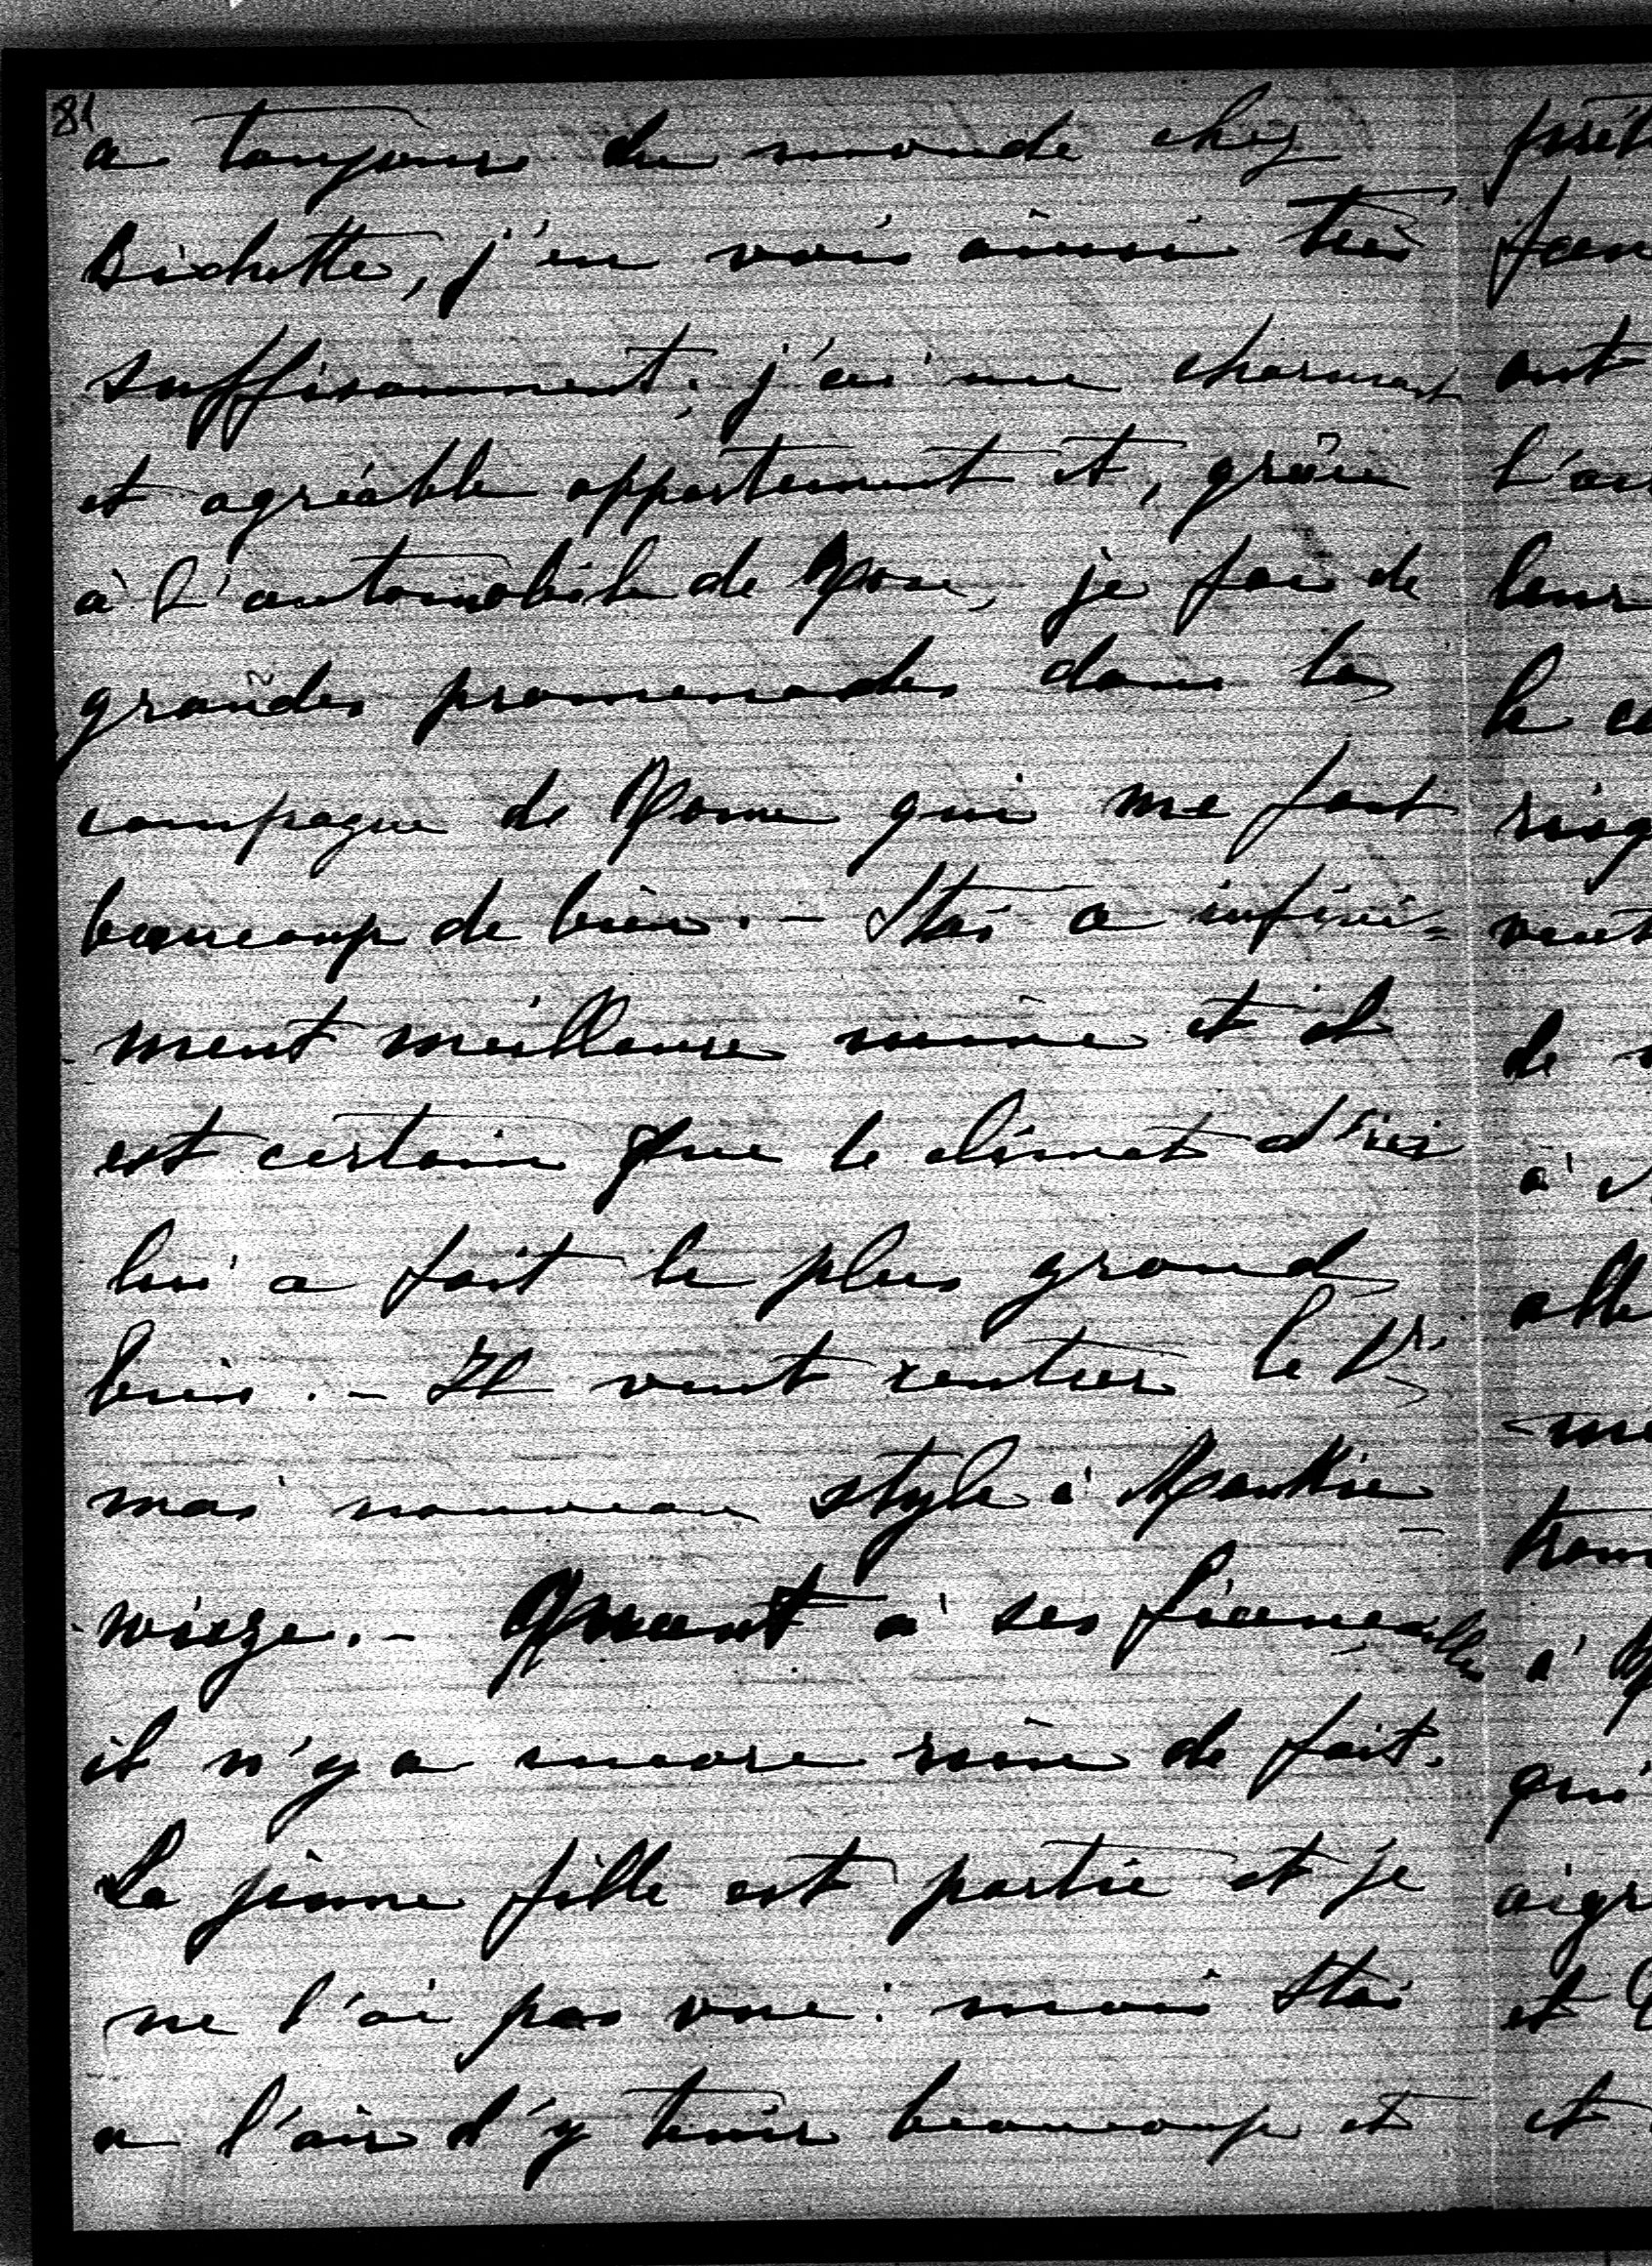 81
a toujours du monde chez
Bichette, j'en vois ainsi très
suffisamment; j'ai un charmant
et agréable appartement et, grâce
à l'automobile de Rose, je fais de
grandes promenades dans la
campagne de Rome qui me font
beaucoup de bien. - Stas a infini=
ment meilleure mine et il
est certain que le climat d'ici
lui a fait le plus grand
bien. - Il veut rentrer le 1r.
mai nouveau style à
Quant à ses fiançailles
il n'y a encore rien de fait.
La jeune fille est partie et je
ne l'ai pas vue: mais Stas
a l'air d'y tenir beaucoup et
ont
leur
de
à
qui
et
et